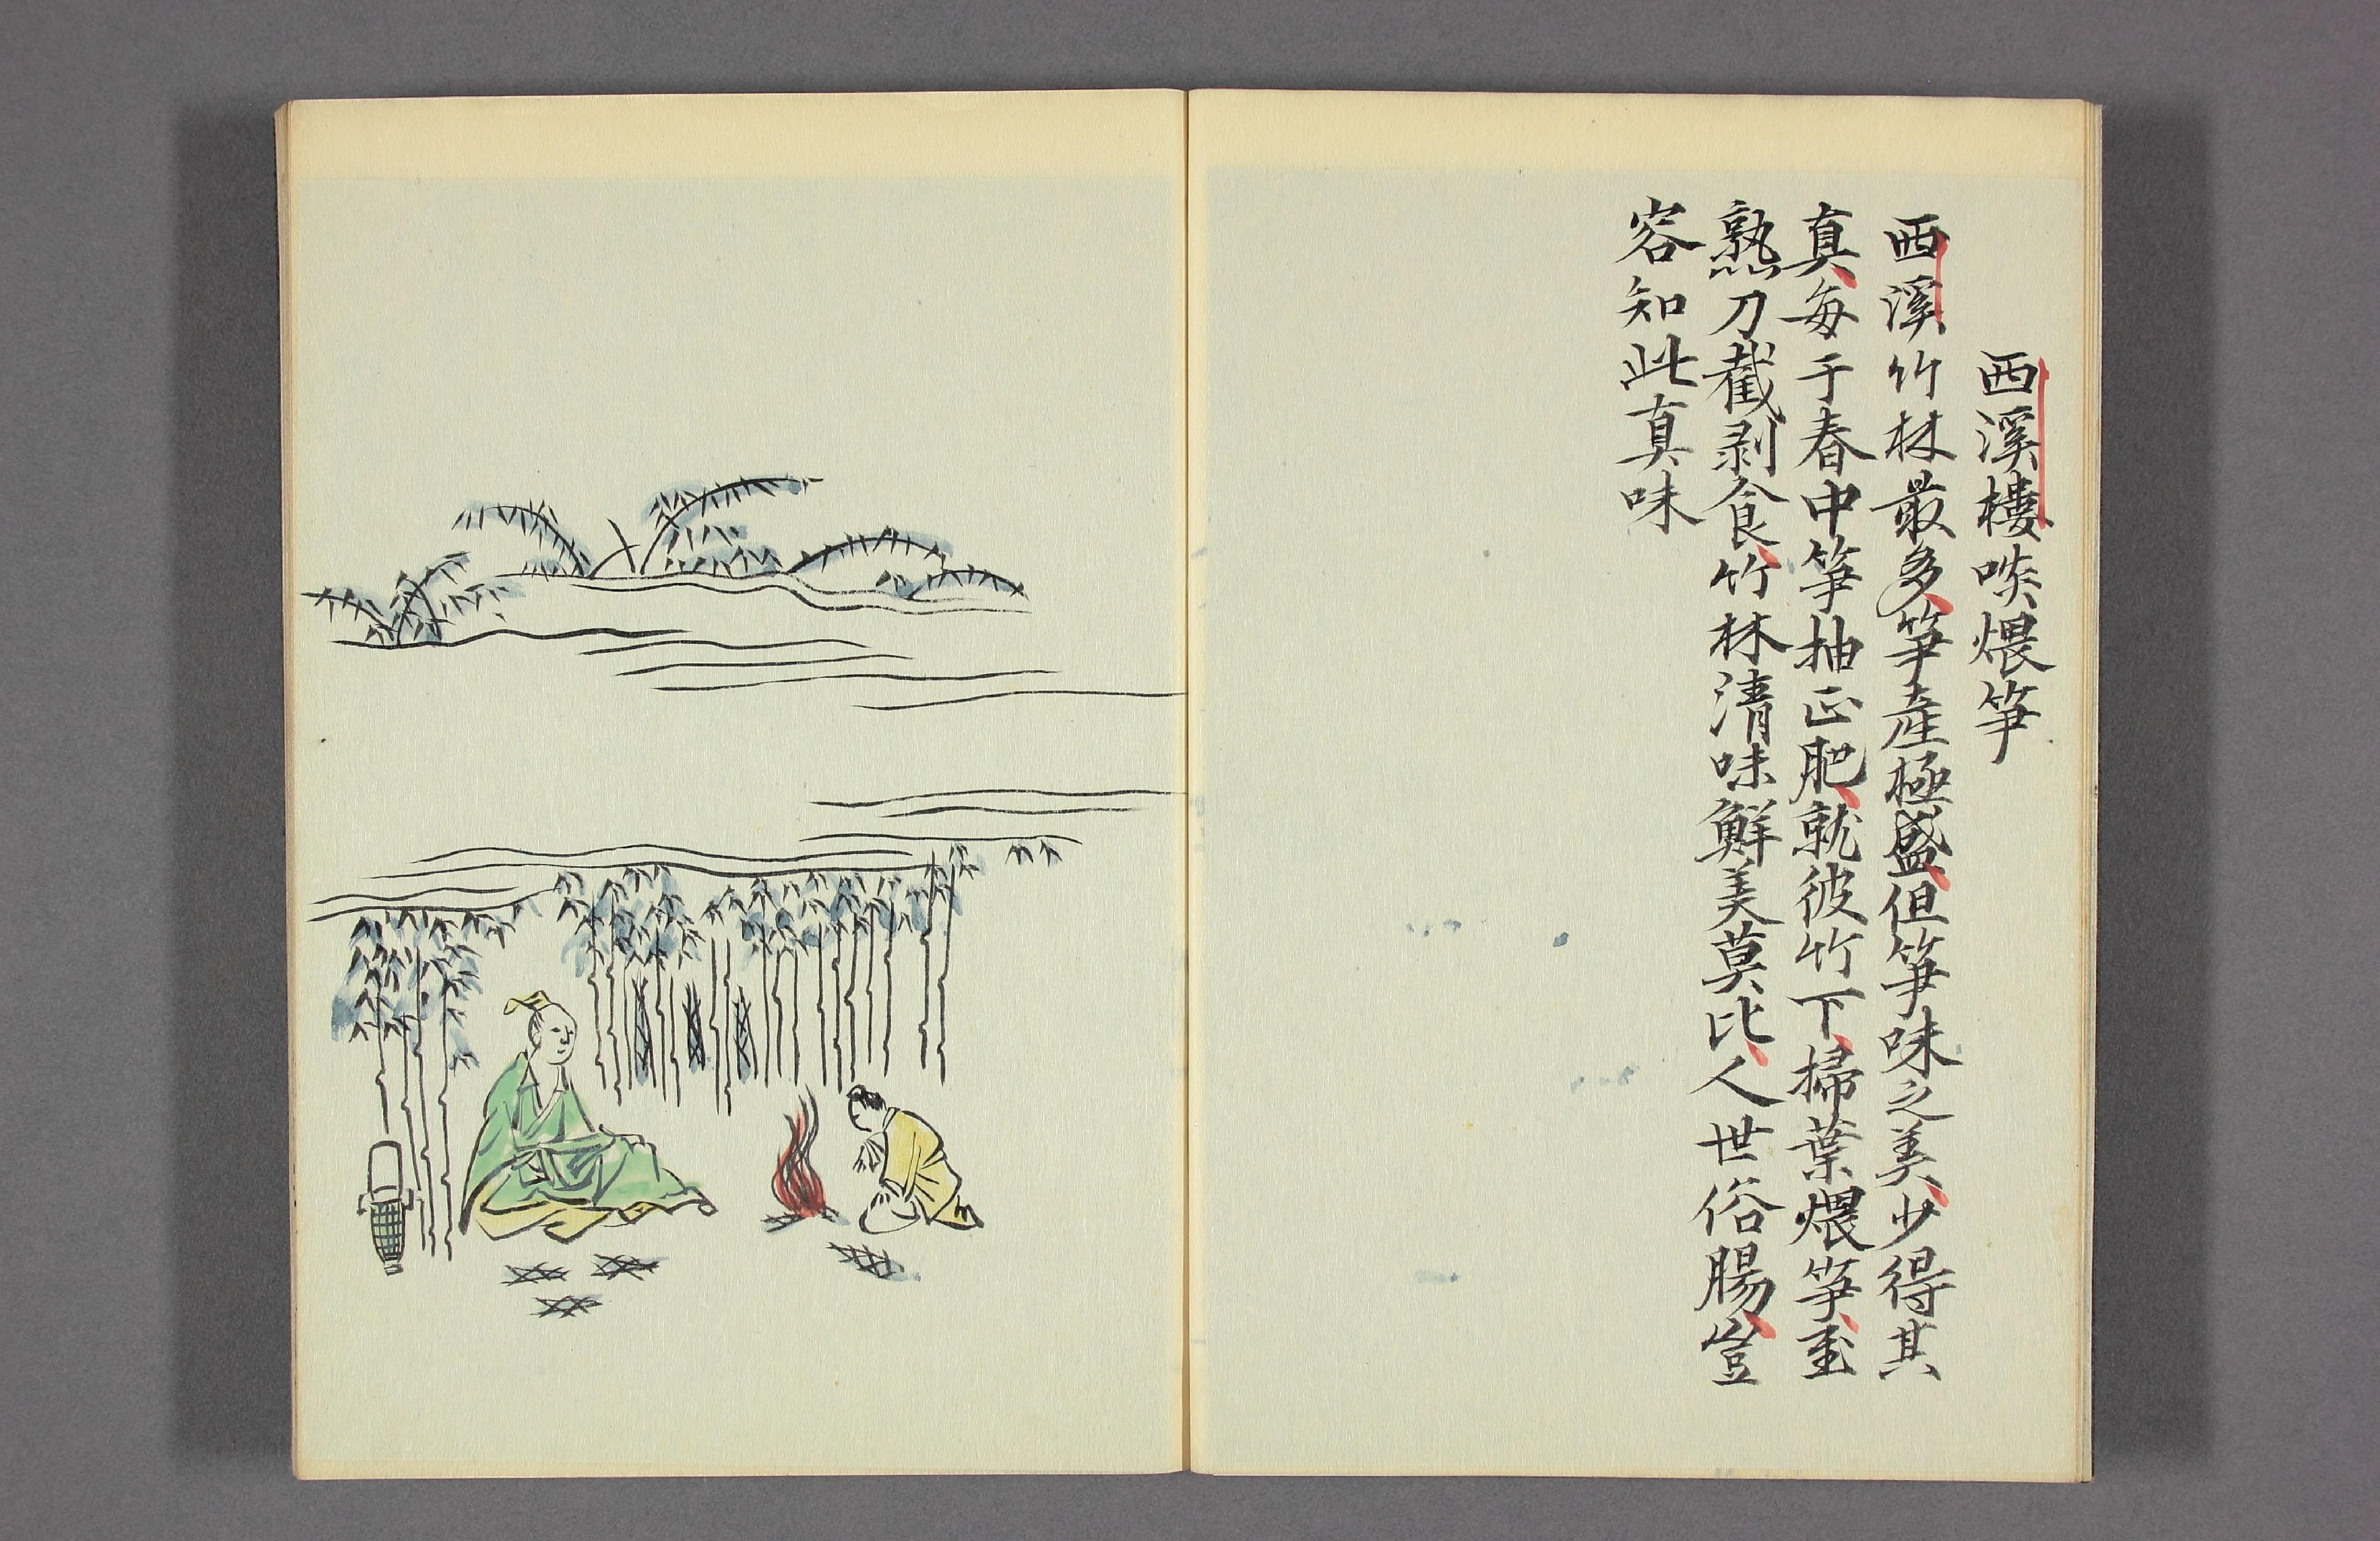 西溪樓啖煨筍
西溪竹林最多、筍産極盛、但筍味之美、少得其
真、每于春中筍抽正肥、就彼竹下、掃葉煨筍、至
熟刀截剥食、竹林清味鮮美莫比、人世俗腸、豈
容知此真味